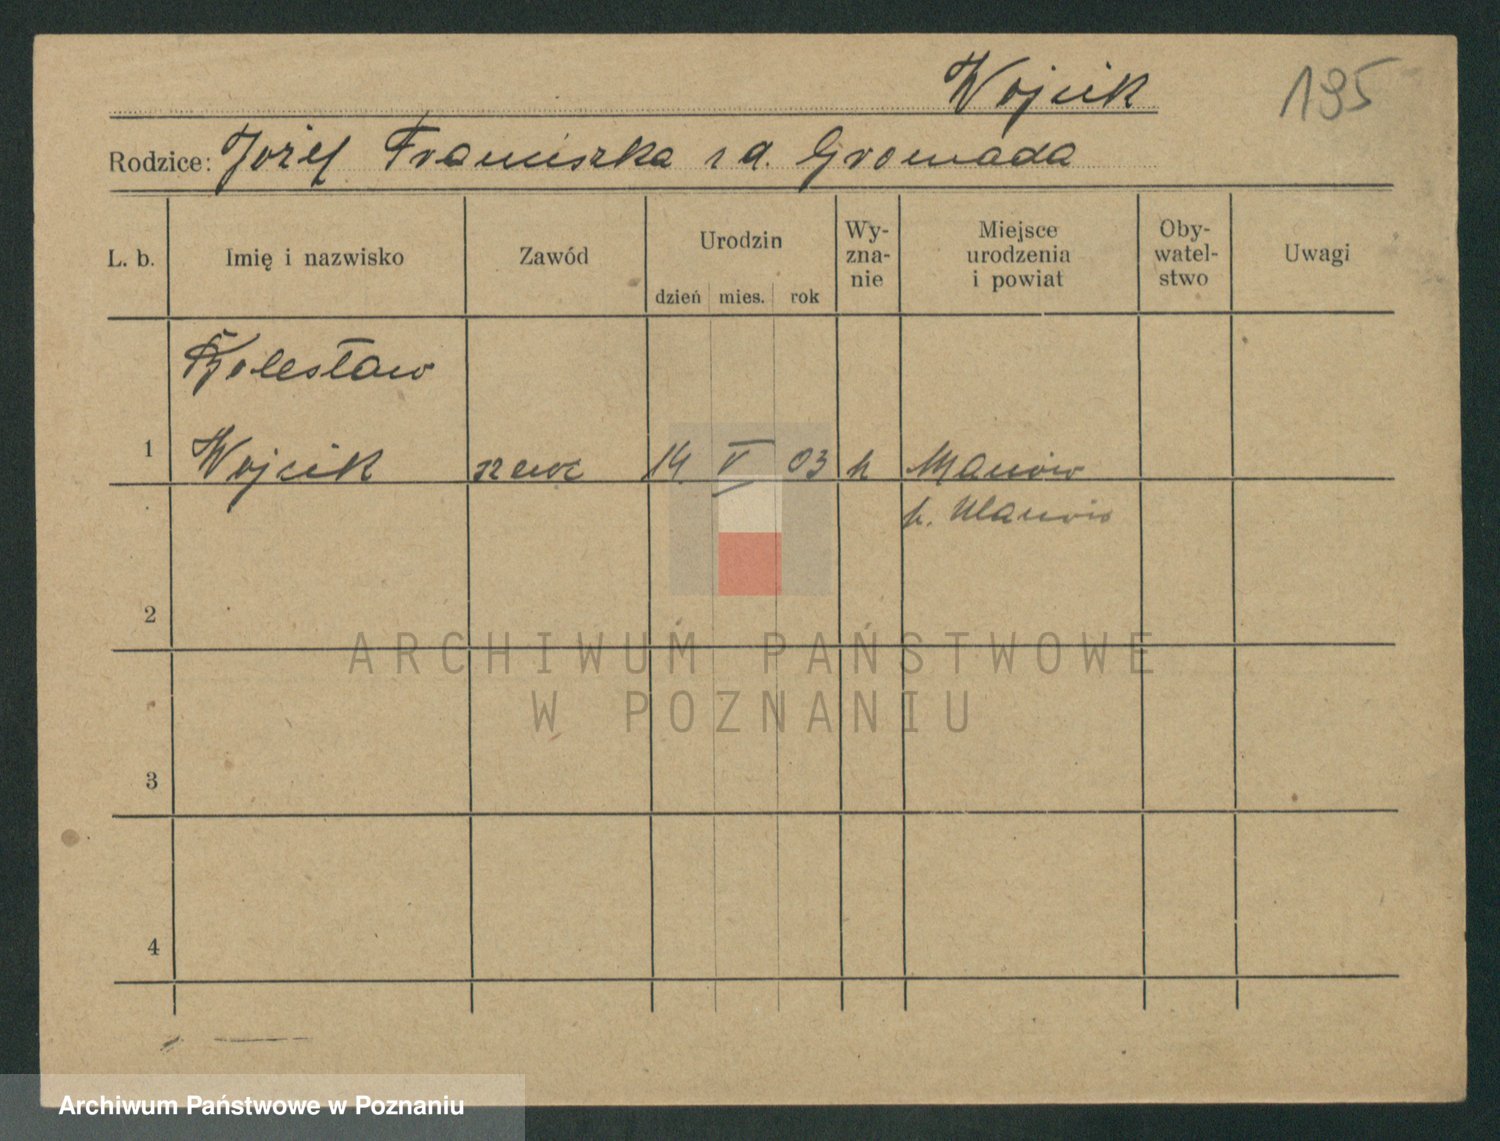 Wojcik 195
Rodzice: Józef Franciszka z d. Gromada
L. b. Imię i nazwisko Zawód Urodzin Wy-zna-nie Miejsce urodzenia i powiat Oby-watel-stwo Uwagi
dzień mies. rok
Bolesław
1 Wojcik szewc 14 V 03 k
2
ARCHIWUM PAŃSTWOWE
W POZNANIU
3
4
Archiwum Państwowe w Poznaniu